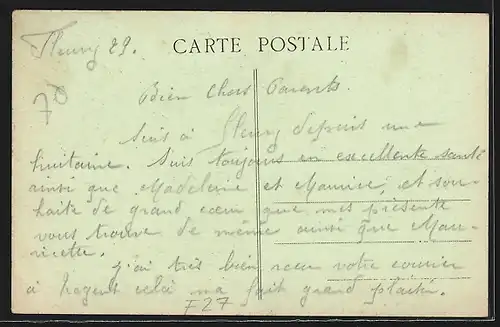 Fleury 29.
CARTE POSTALE
70
Bien Chers Parents.
Suis à Fleury depuis une
huitaine. Suis toujours en excellente santé
ainsi que Madeleine et Maurice, et sou-
haite de grand cœur que mes présente
vous trouve de même ainsi que Mau-
ricette.
J'ai très bien reçu votre courrier
à cela m'a fait grand plaisir.
F27